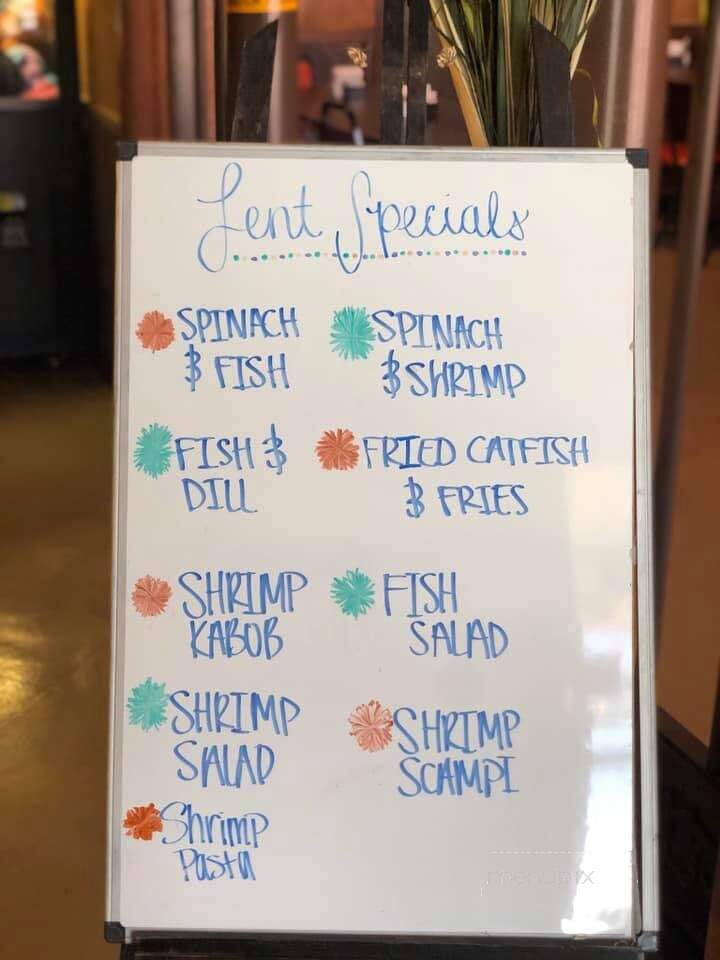 Lent Specials
SPINACH
& FISH
SPINACH
& SHRIMP
FISH &
DILL
FRIED CATFISH
& FRIES
SHRIMP
KABOB
FISH
SALAD
SHRIMP
SALAD
SHRIMP
SCAMPI
Shrimp
Pasta
menupix